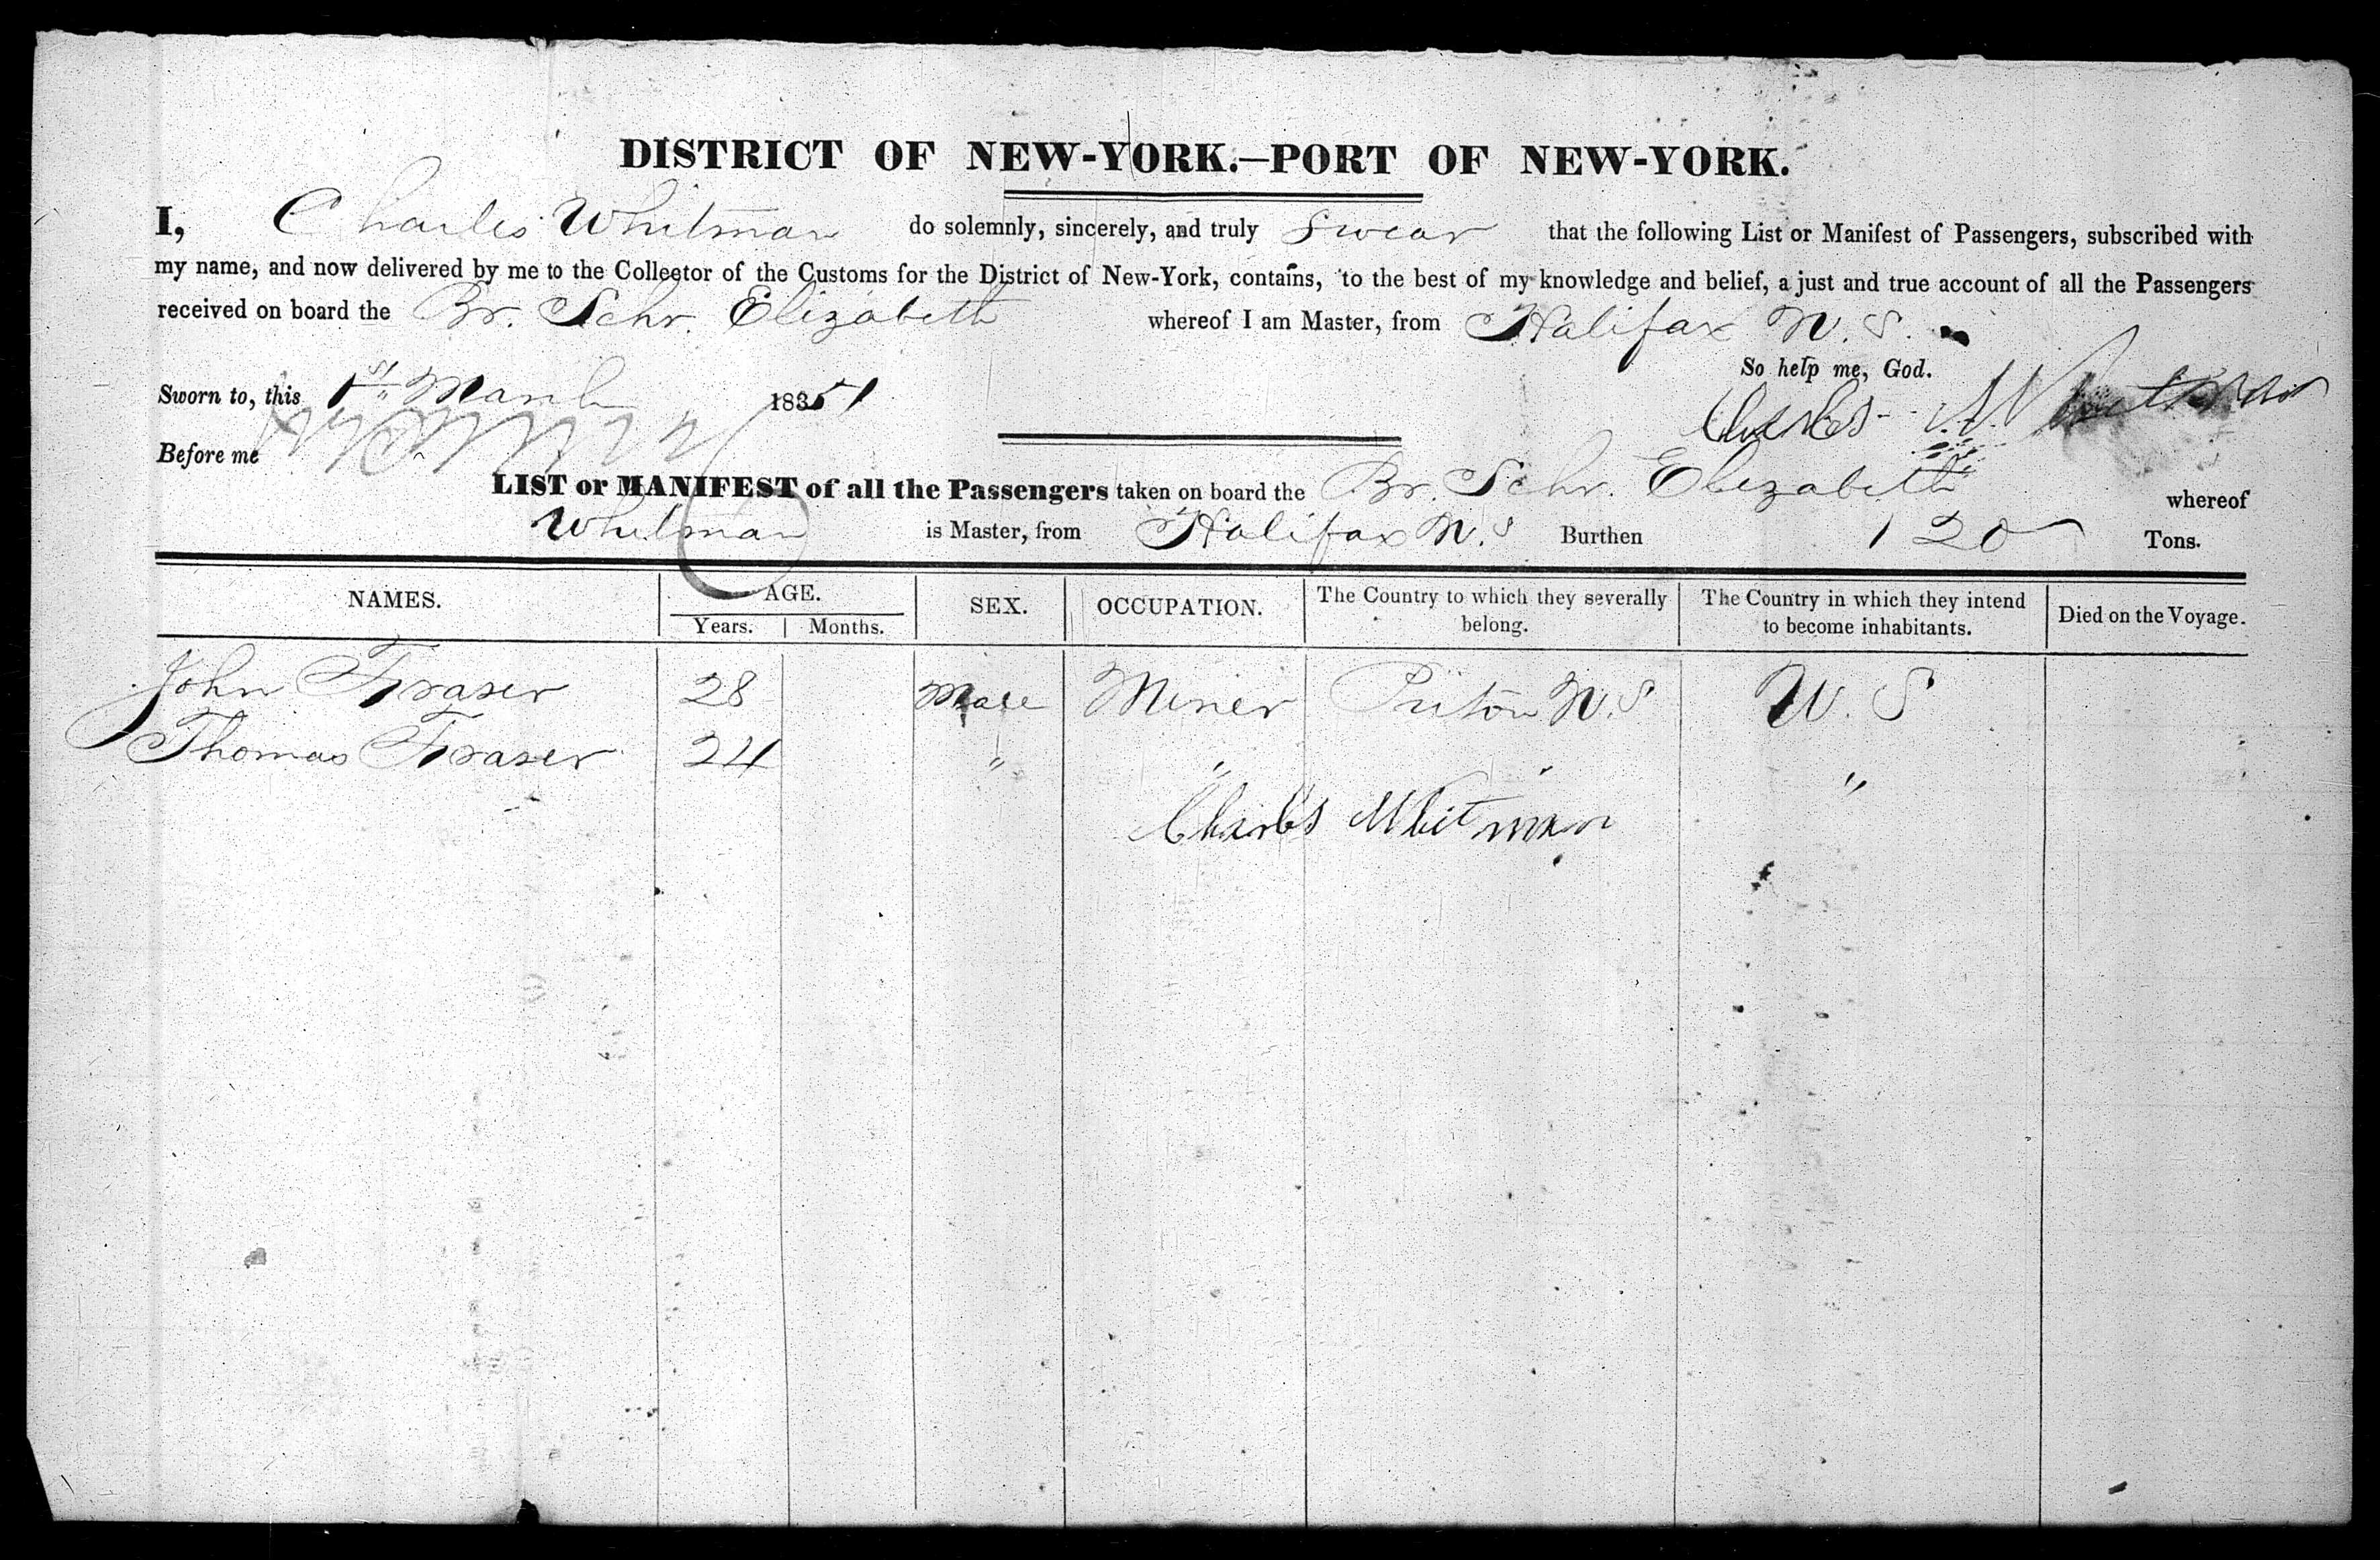 DISTRICT OF NEW-YORK.—PORT OF NEW-YORK.
I, Charles Whitman do solemnly, sincerely, and truly Swear that the following List or Manifest of Passengers, subscribed with
my name, and now delivered by me to the Collector of the Customs for the District of New-York, contains, to the best of my knowledge and belief, a just and true account of all the Passengers
received on board the Br. Schr. Elizabeth whereof I am Master, from Halifax N. S.
So help me, God.
Sworn to, this 1st March 1851 Charles Whitman
Before me
LIST or MANIFEST of all the Passengers taken on board the Br. Schr. Elizabeth whereof
Whitman is Master, from Halifax N. S Burthen 120 Tons.
NAMES. AGE. Years. Months. SEX. OCCUPATION. The Country to which they severally belong. The Country in which they intend to become inhabitants. Died on the Voyage.
John Fraser 28 Male Miner N. S U. S
Thomas Fraser 24 " " " "
Charles Whitman